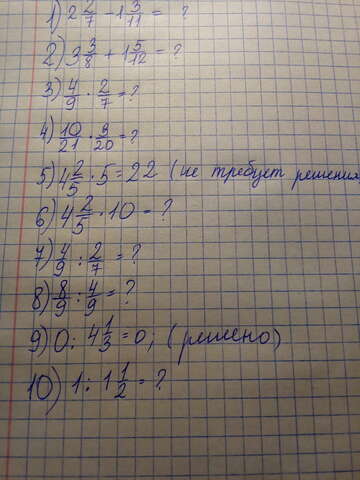 1) 2 2/7 - 1 3/11 = ?
2) 3 3/8 + 1 5/12 = ?
3) 4/9 · 2/7 = ?
4) 10/21 · 9/20 = ?
5) 4 2/5 · 5 = 22 (не требует решения
6) 4 2/5 · 10 = ?
7) 4/9 : 2/7 = ?
8) 8/9 : 4/9 = ?
9) 0 : 4 1/3 = 0; (решено)
10) 1 : 1 1/2 = ?